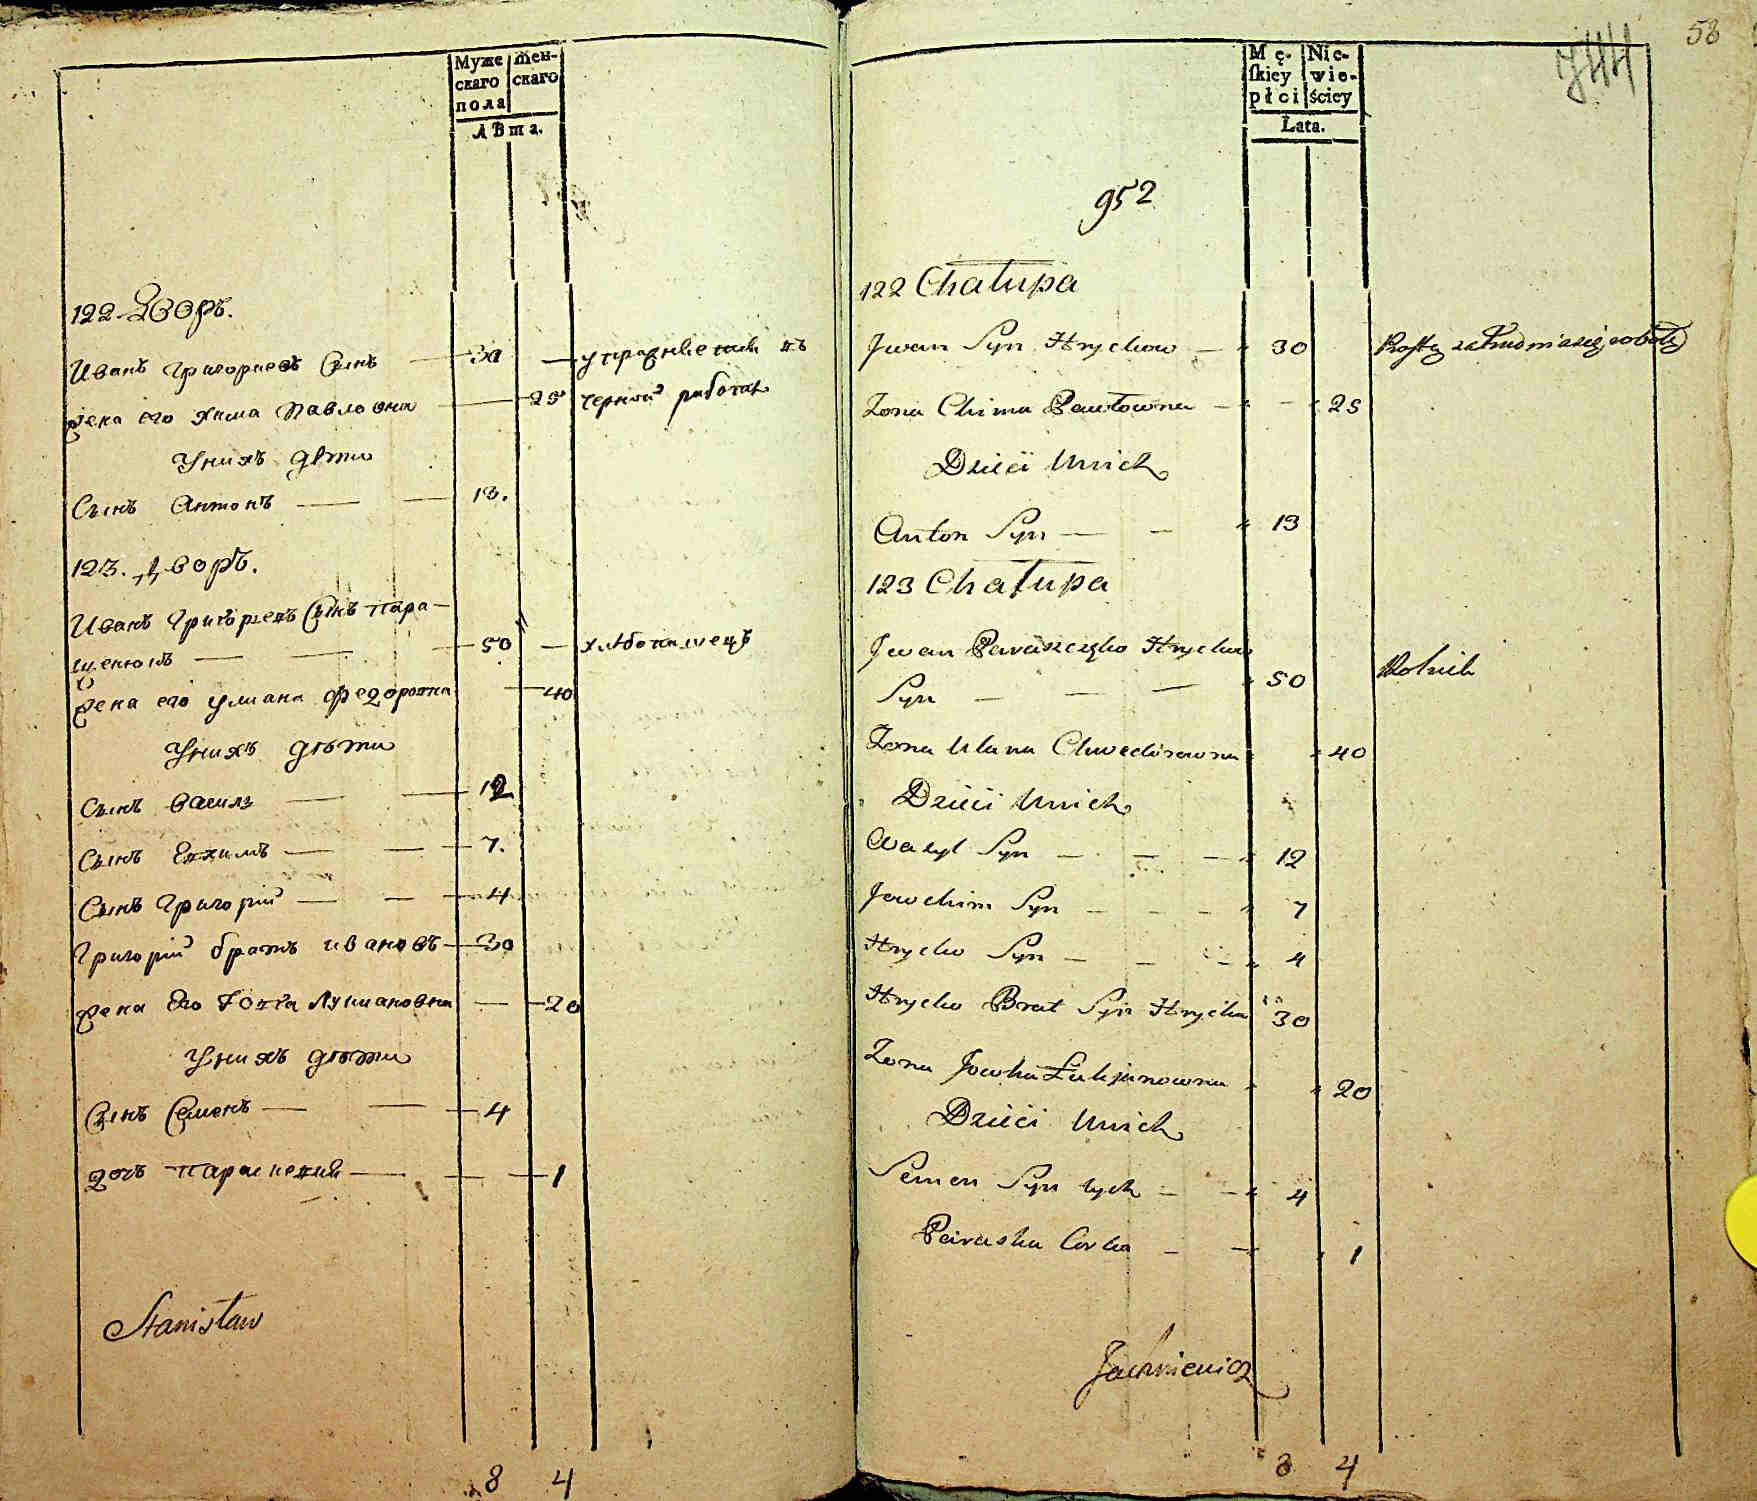 Муже
скаго
пола
Жен-
скаго
Лѣта.
122 Дворъ.
Иванъ Григориевъ Сынъ — 30 —
упражняется въ
Жена его Хима Павловна — 25
черной работѣ
У нихъ дѣти
Сынъ Антонъ — — 13.
123. Дворъ.
Иванъ Григорьевъ Сынъ Пара-
щенюкъ — — 50 — хлѣбопашецъ
Жена его Улиана Федоровна — 40
У нихъ дѣти
Сынъ Василь — — 12
Сынъ Евхимъ — — 7.
Сынъ Григорий — — 4
Григорий братъ Ивановъ — 30
Жена Его Іовка Лукиановна — — 20
У нихъ дѣти
Сынъ Семенъ — — 4
Дочь Параскевия — — — 1
Stanisław
8 4
58
744
Mę-
skiey
płci
Nie-
wie-
ściey
Lata.
952
122 Chałupa
Jwan Syn Hryckow — 30
Prostą zatrudnia się robotą
Zona Chima Pawłowna — — 25
Dzieci Unich
Anton Syn — — 13
123 Chałupa
Jwan Paraszczyko Hrycka
Syn — — — 50
Rolnik
Zona Ulana Chwedorowna 40
Dzieci Unich
Wasyl Syn — — — 12
Jewchim Syn — — — 7
Hrycko Syn — — — 4
Hrycko Brat Syn Hrycka 30
Zona Jowka Łukjanowna 20
Dzieci Unich
Semen Syn tych — — 4
Paraska Corka — — 1
Jachniewicz
8 4